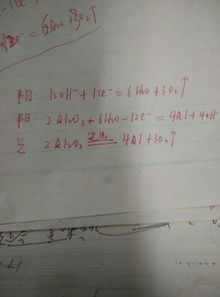 12e⁻ = 6H₂O + 3O₂↑
阳: 12OH⁻ + 12e⁻ = 6H₂O + 3O₂↑
阳: 2Al₂O₃ + 6H₂O - 12e⁻ = 4Al + 4OH
总 2Al₂O₃ 电解 4Al + 3O₂↑